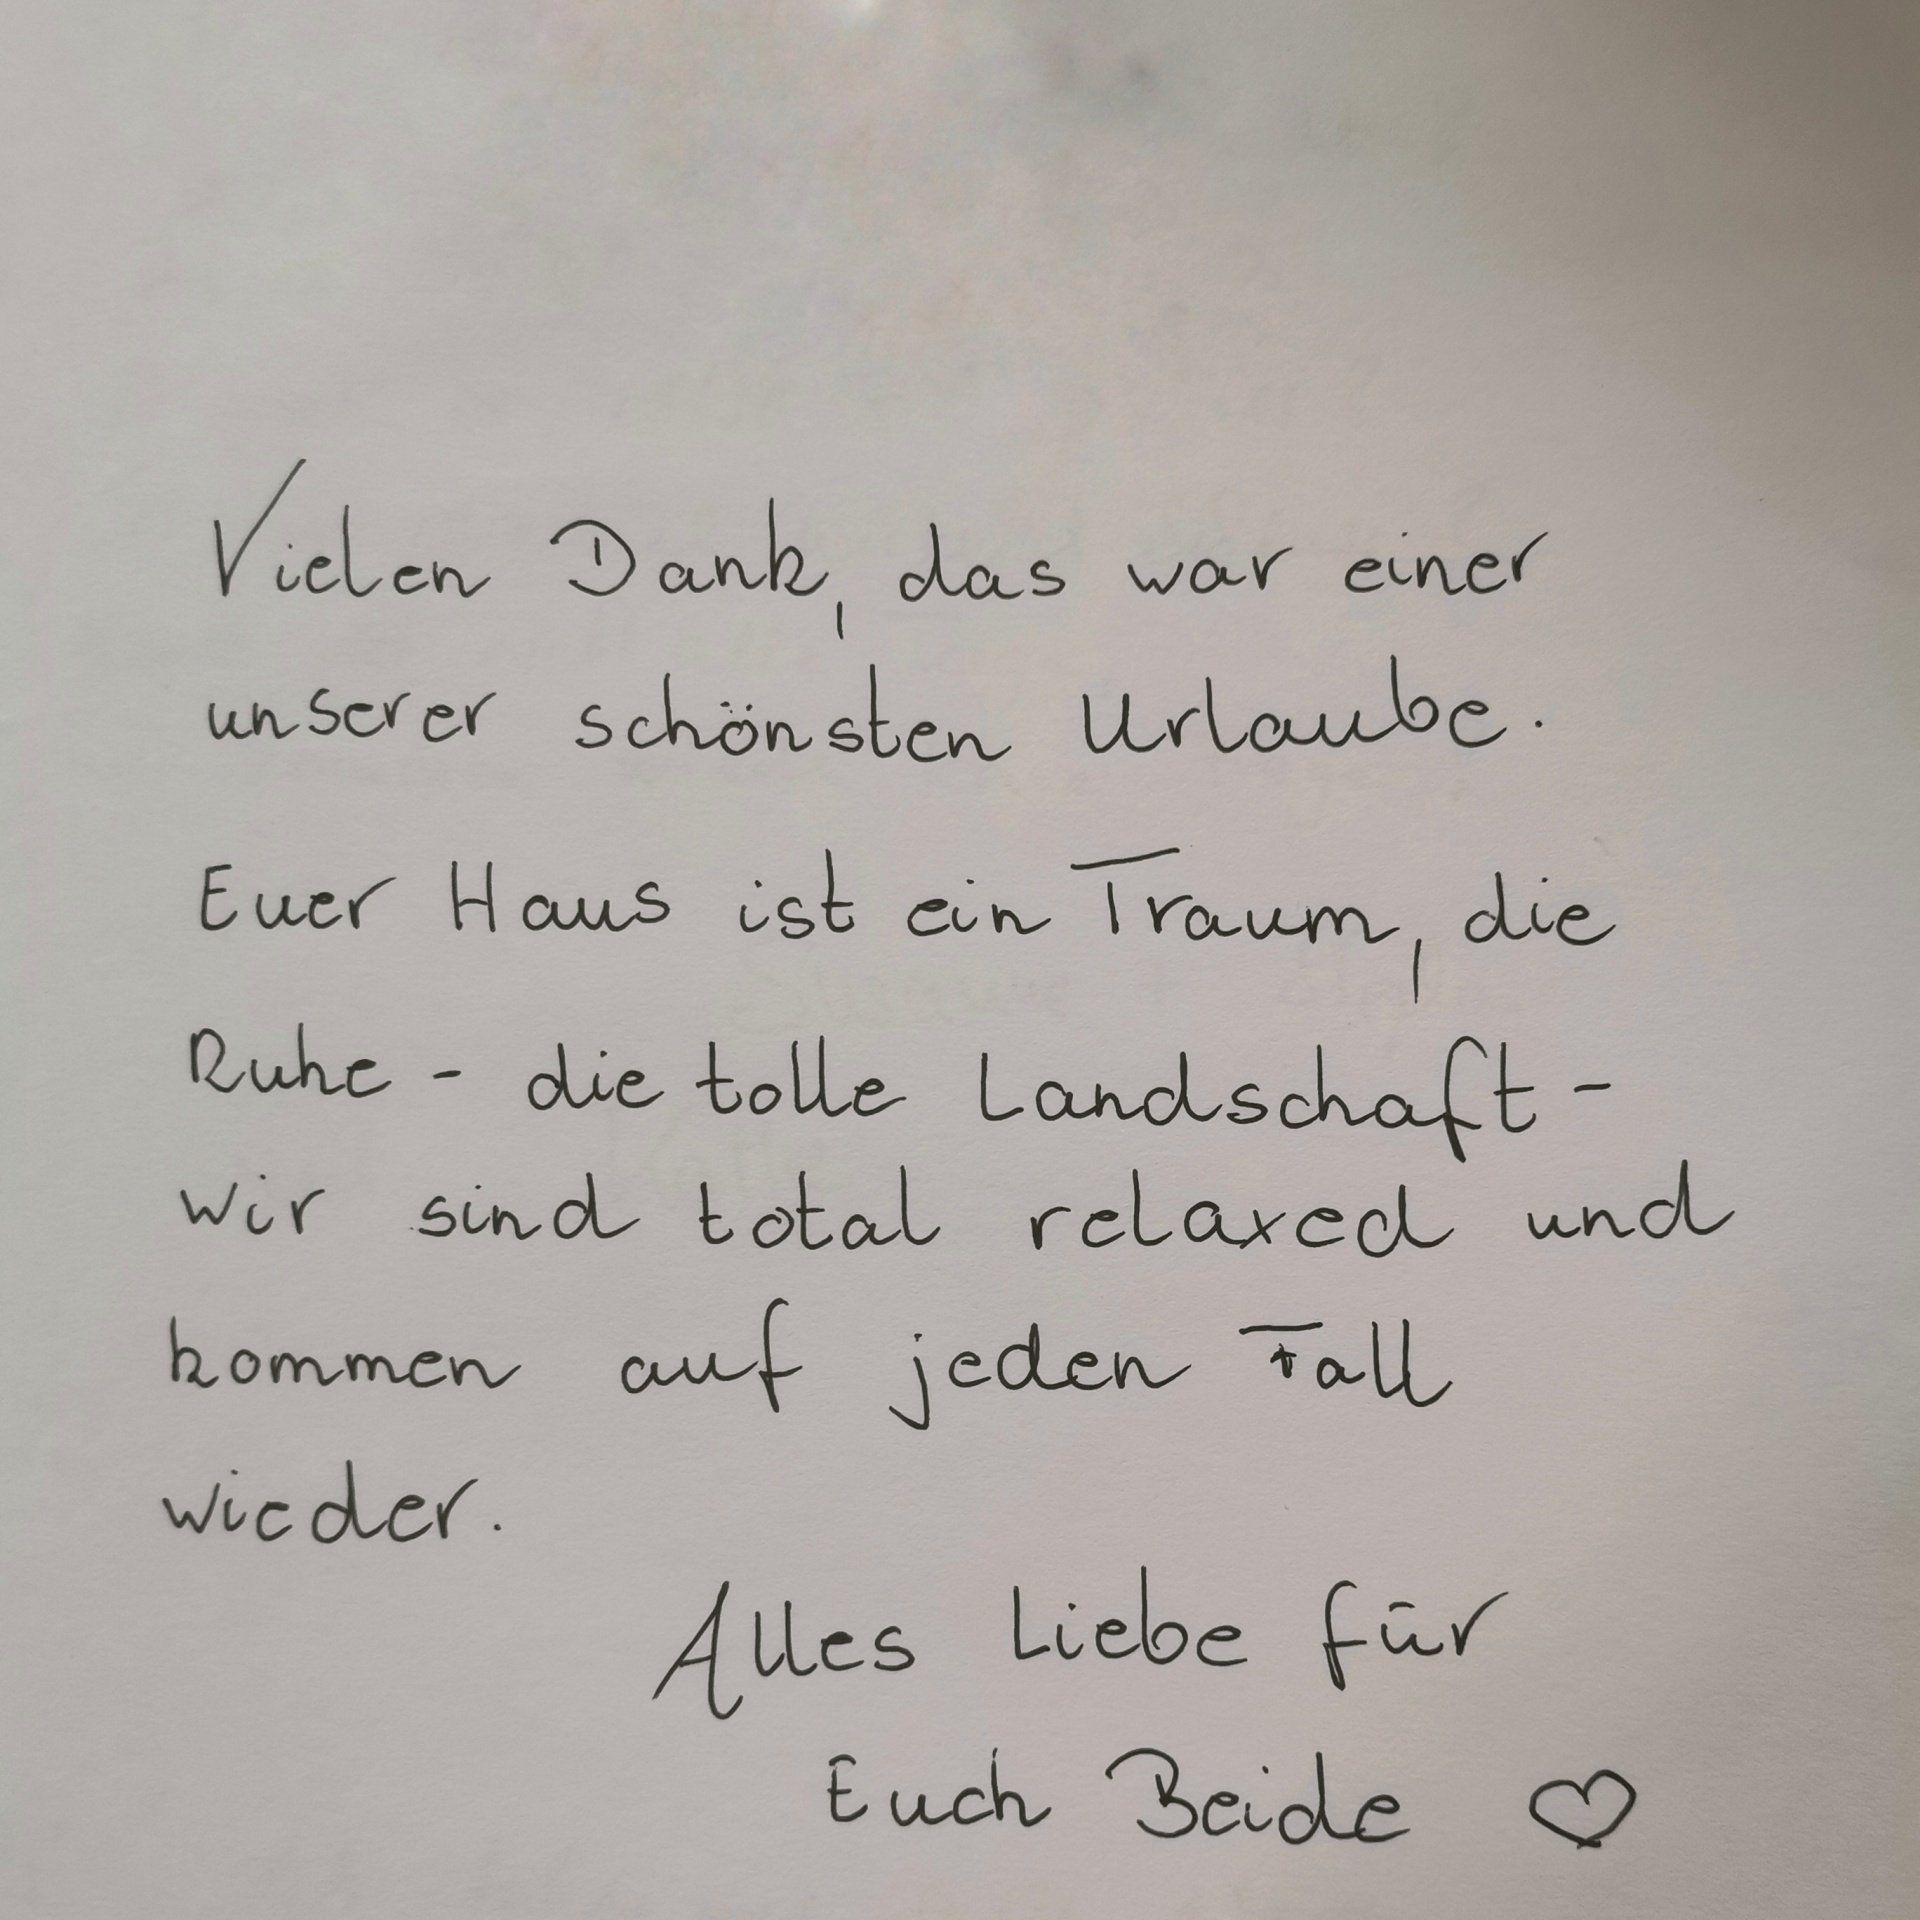 Vielen Dank, das war einer
unserer schönsten Urlaube.
Euer Haus ist ein Traum, die
Ruhe - die tolle Landschaft -
wir sind total relaxed und
kommen auf jeden Fall
wieder.
Alles Liebe für
Euch Beide ♡